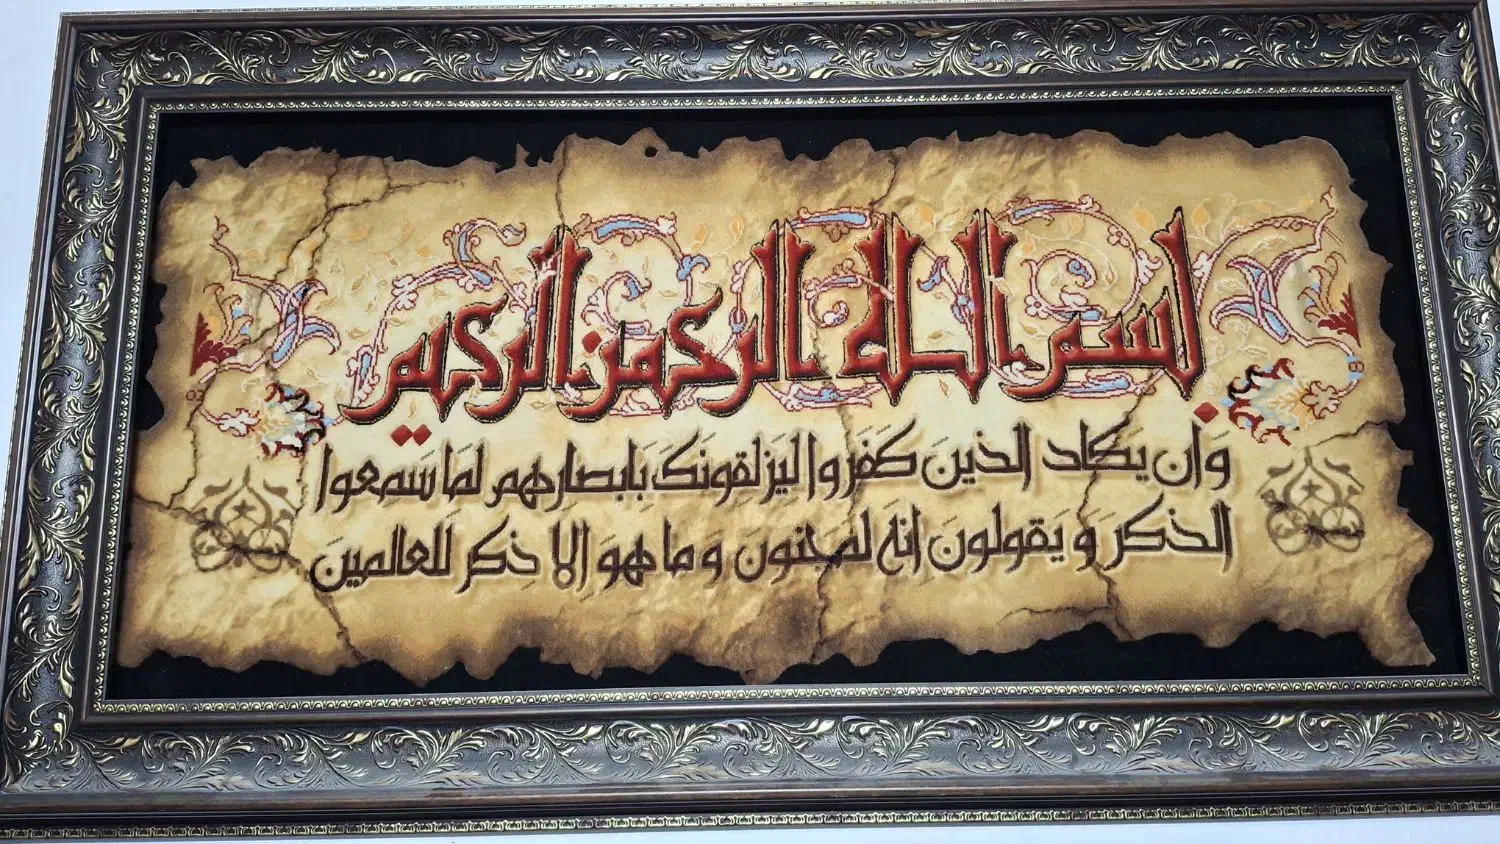 بسم الله الرحمن الرحیم
وَان یَکاد الذین کَفَروا لیَزلقونکَ بِابصارِهم لمَا سَمِعوا
الذکرَ وَ یَقولونَ انهَ لمَجنونَ وَ ما هوَ الا ذکر للعالمینَ